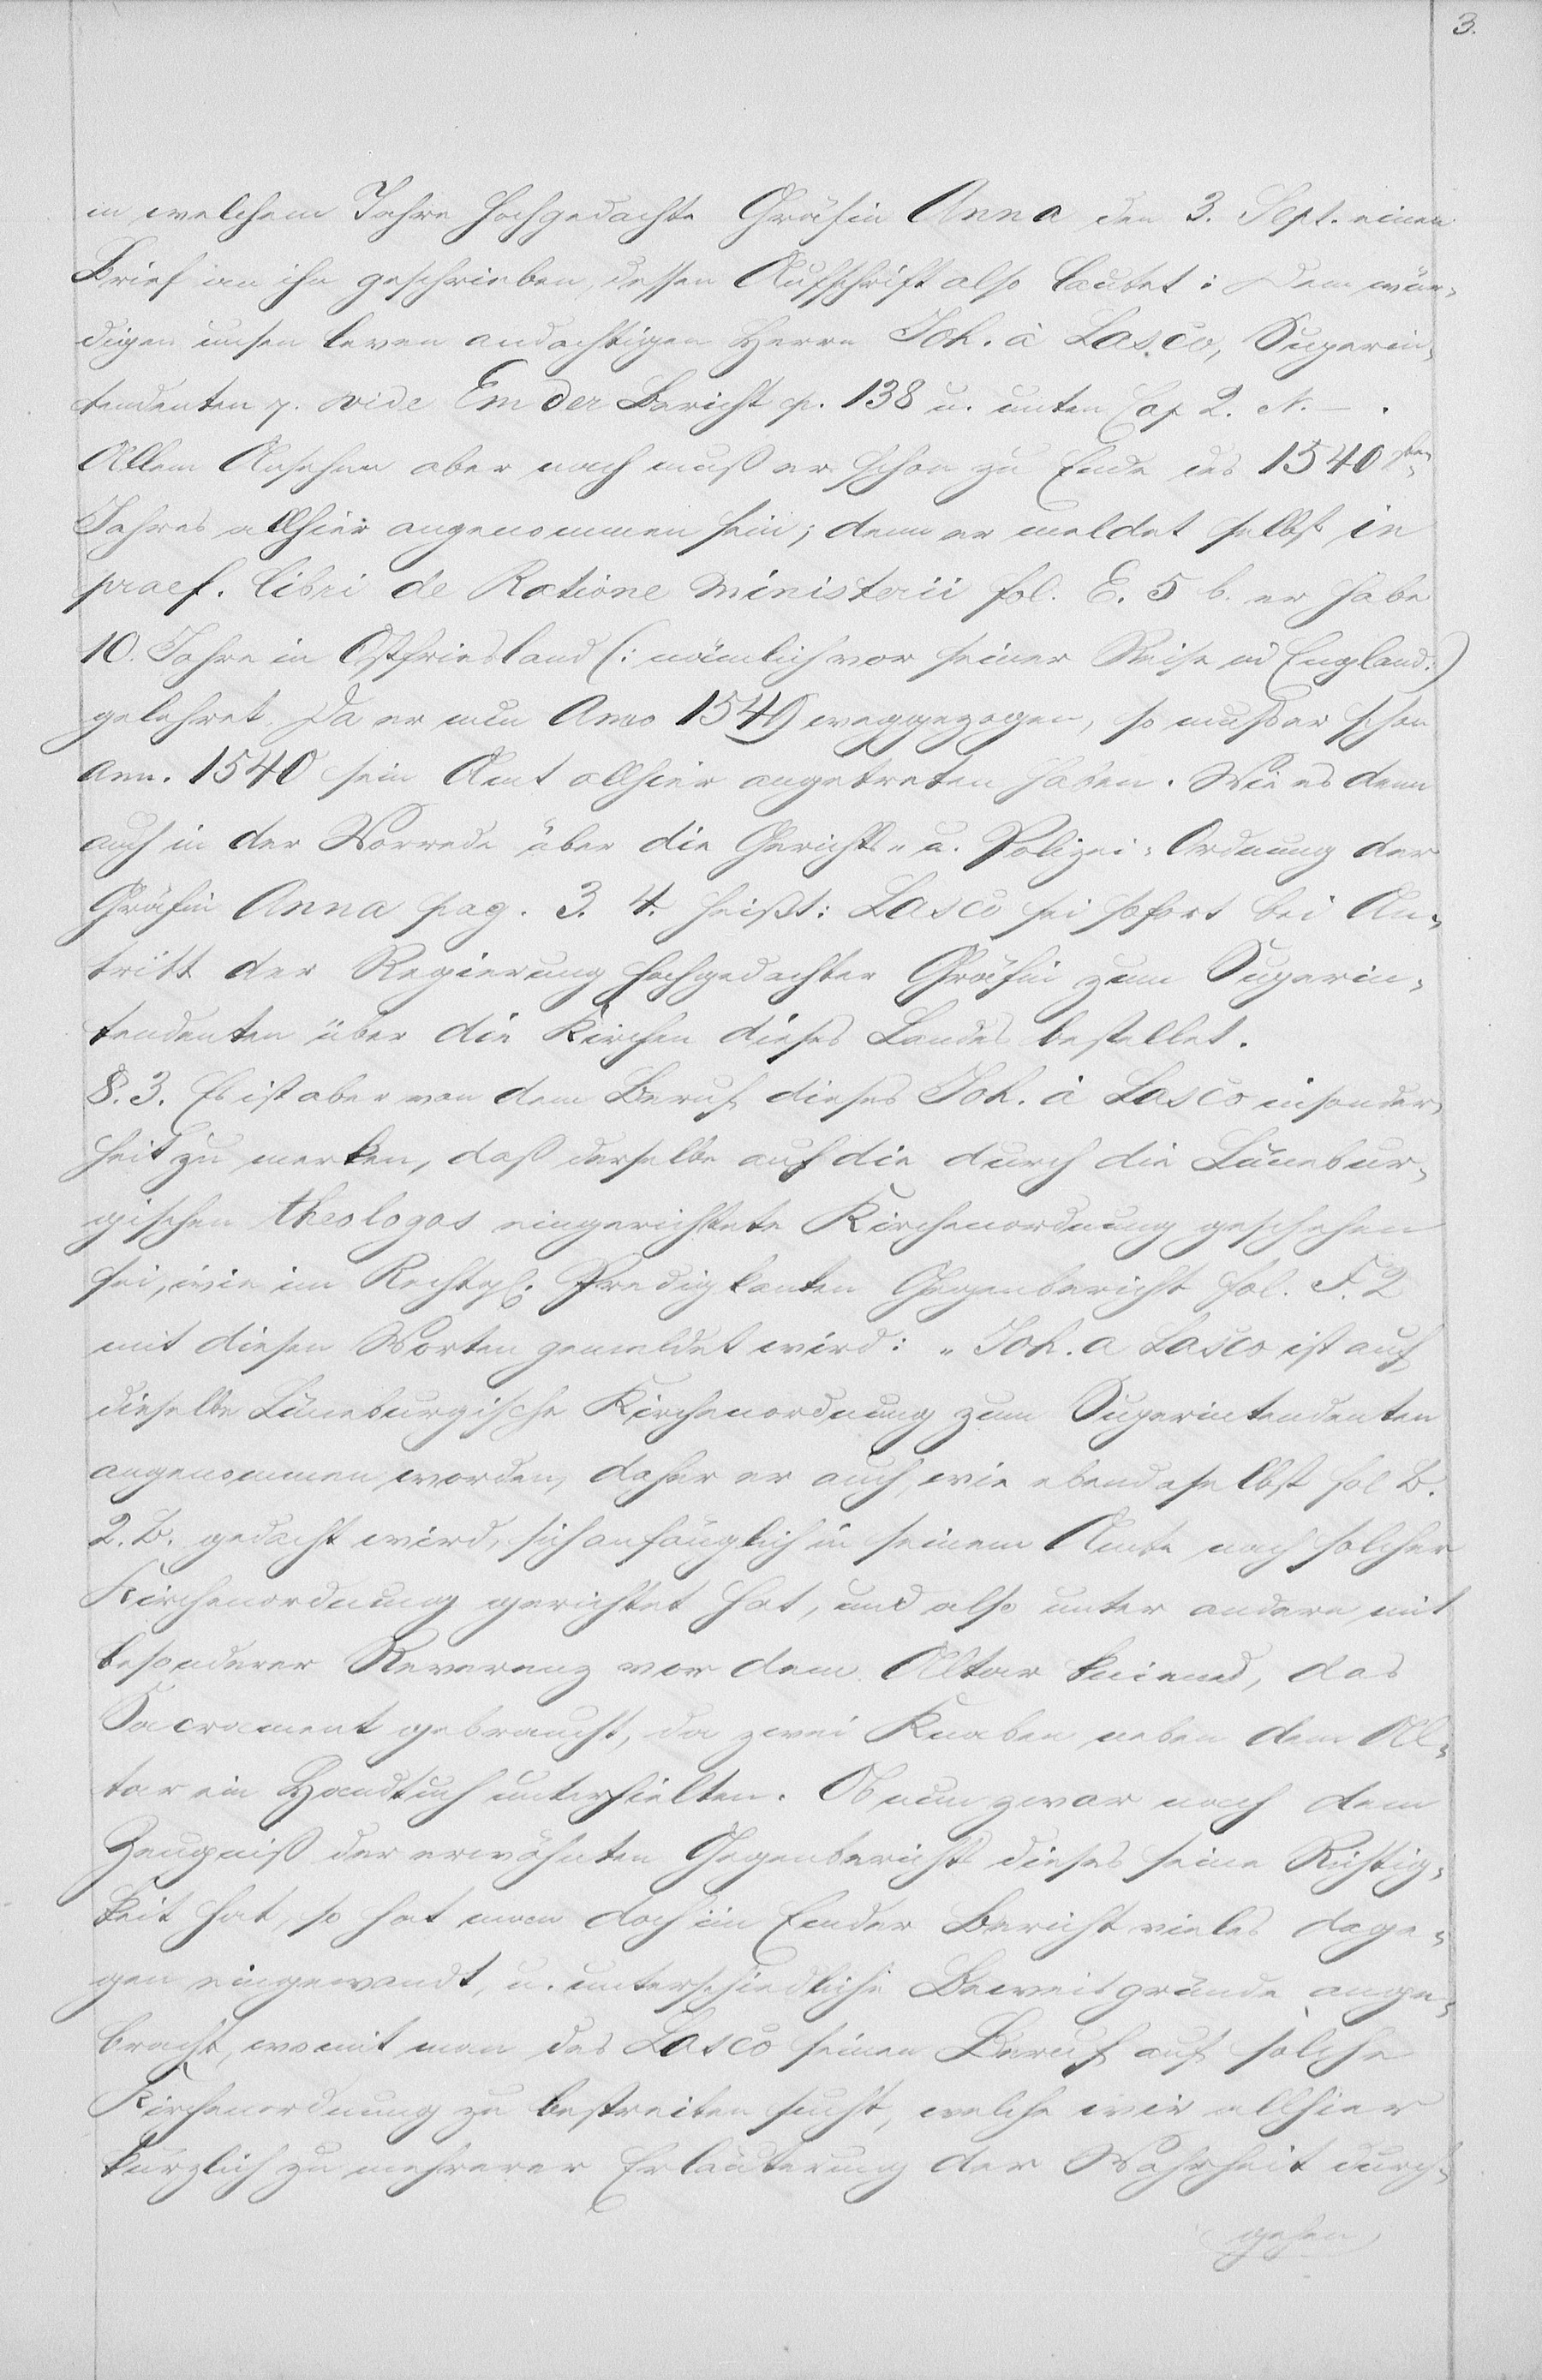 3.
in welchem Jahre hochgedachte Gräfin Anna den 3. Sept. einen
Brief an ihn geschrieben, dessen Aufschrift also lautet: Dem wür-
digen unsen leven andachtigen Herrn Joh. à Lasco, Superin-
tendenten p. vide Emder Bericht p. 138 u. unten Cap 2. N. — .
Allem Ansehen aber nach muß er schon zu Ende des 1540sten
Jahres allhier angenommen sein; denn er meldet selbst in
praef. libri de Ratione Ministerii fol. E. 5 b. er habe
10. Jahre in Ostfriesland (: nämlich vor seiner Reise nach England :)
gelehret. Da er nun Anno 1549 weggezogen, so muß er schon
Ann. 1540 sein Amt allhier angetreten haben. Wie es denn
auch in der Vorrede über die Gerichts- u. Polizei-Ordnung der
Gräfin Anna pag. 3. 4. heißt: Lasco sei sofort bei An-
tritt der Regierung hochgedachter Gräfin zum Superin-
tendenten über die Kirchen dieses Landes bestellet.
§. 3. Es ist aber von dem Beruf dieses Joh. à Lasco insonder-
heit zu merken, daß derselbe auf die durch die Lünebur-
gischen theologos eingerichtete Kirchenordnung geschehen
sei, wie im Rechtgl. Predigkanten Gegenbericht fol. F. 2
mit diesen Worten gemeldet wird: „Joh. a Lasco ist auf
dieselbe Lüneburgische Kirchenordnung zum Superintendenten
angenommen worden, daher er auch, wie ebendaselbst fol B.
2. B. gedacht wird, sich anfänglich in seinem Amte nach solcher
Kirchenordnung gerichtet hat, und also unter andern mit
besonderer Reverenz vor dem Altar kniend, das
Sacrament gebraucht, da zwei Knaben neben dem Al-
tar ein Handtuch unterhielten. Ob nun zwar nach dem
Zeugniß der erwähnten Gegenbericht dieses seine Richtig-
keit hat, so hat man doch im Emder Bericht vieles dage-
gen eingewandt, u. unterschiedliche Beweisgründe ange-
bracht, womit man des Lasco seinen Beruf auf solche
Kirchenordnung zu bestreiten sucht, welche wir allhier
kürzlich zu mehrerer Erläuterung der Wahrheit durch-
gehen